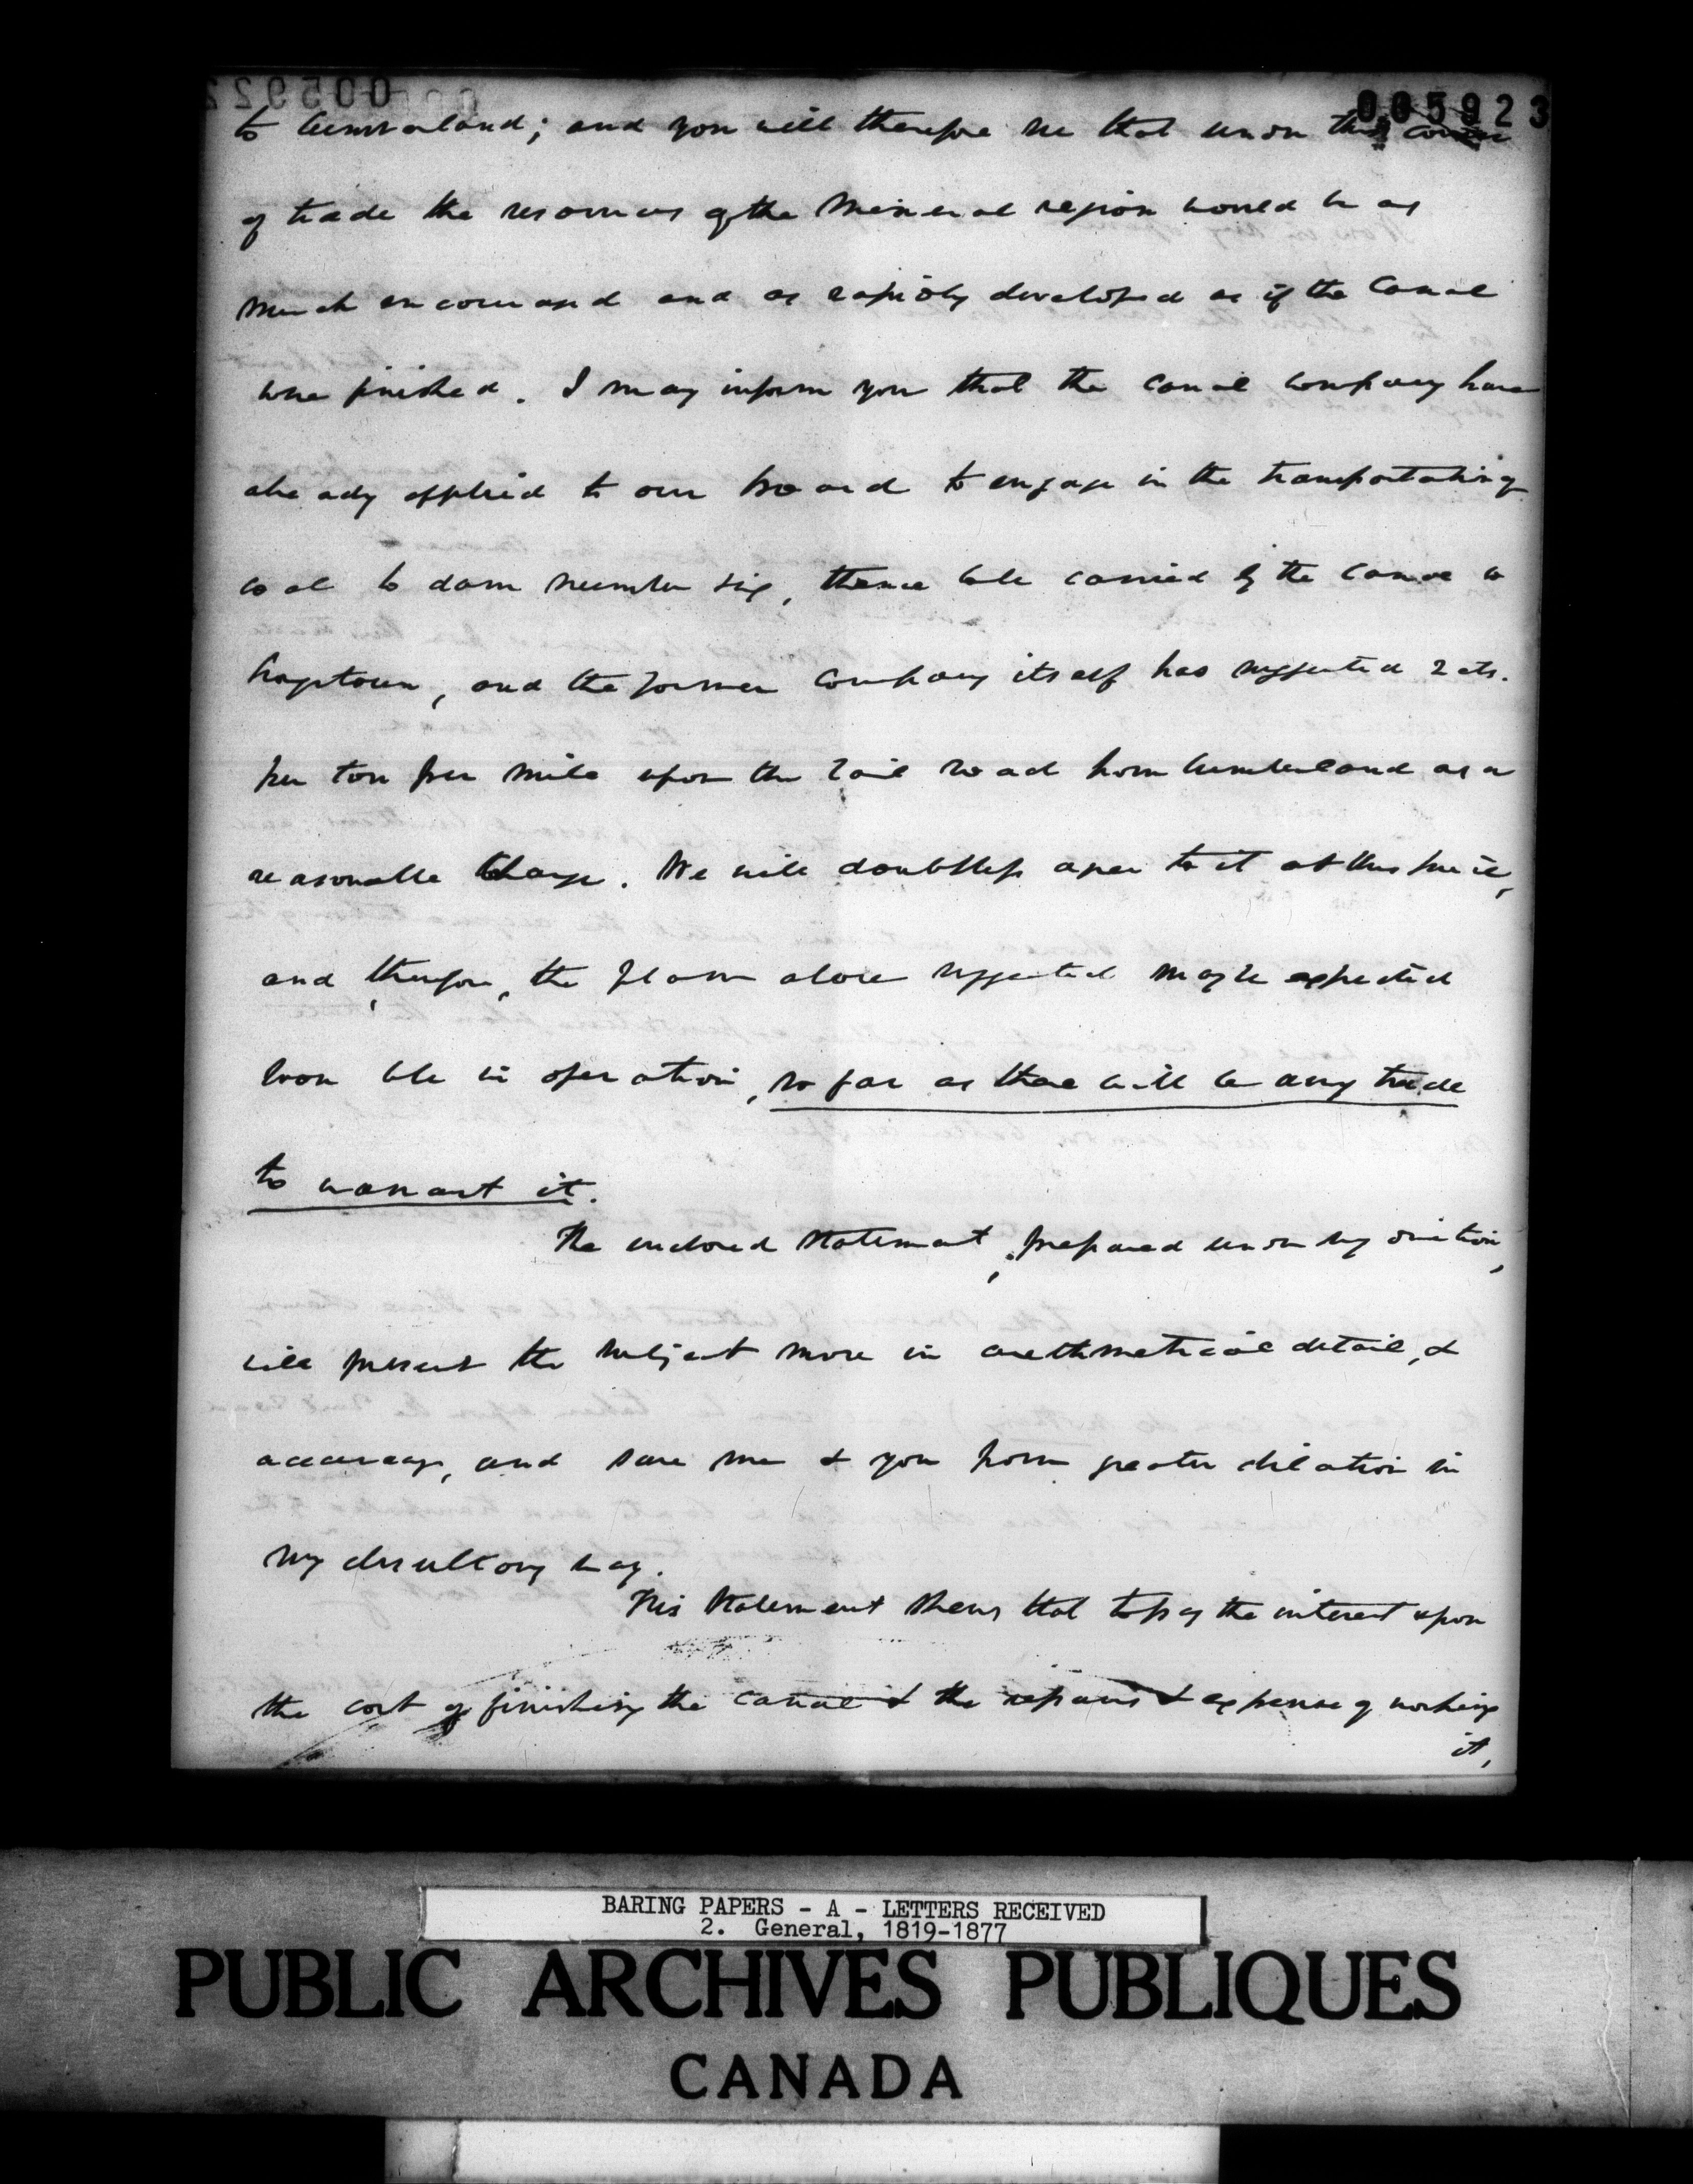 005923
to Cumberland; and you will therefore see that under this course
of trade the resources of the Mineral region would be as
much encouraged and as rapidly developed as if the Canal
were finished. I may inform you that the Canal Company have
already applied to our board to engage in the transportation of
coal to dam number six, thence to be carried by the Canal to
Georgetown, and the former Company itself has suggested 2 cts.
per ton per mile upon the rail road from Cumberland as a
reasonable charge. We will doubtless agree to it at this price,
and, therefore, the plan above suggested may be expected
soon to be in operation, so far as there will be any trade
to warrant it.
The enclosed statement, prepared under my direction,
will present the subject more in arethmetical detail, &
accuracy, and save me & you from greater dilation in
my desultory way.
This statement shews that to pay the interest upon
the cost of finishing the Canal & the repairs & expense of working
it,
BARING PAPERS - A - LETTERS RECEIVED
2. General, 1819-1877
PUBLIC ARCHIVES PUBLIQUES
CANADA